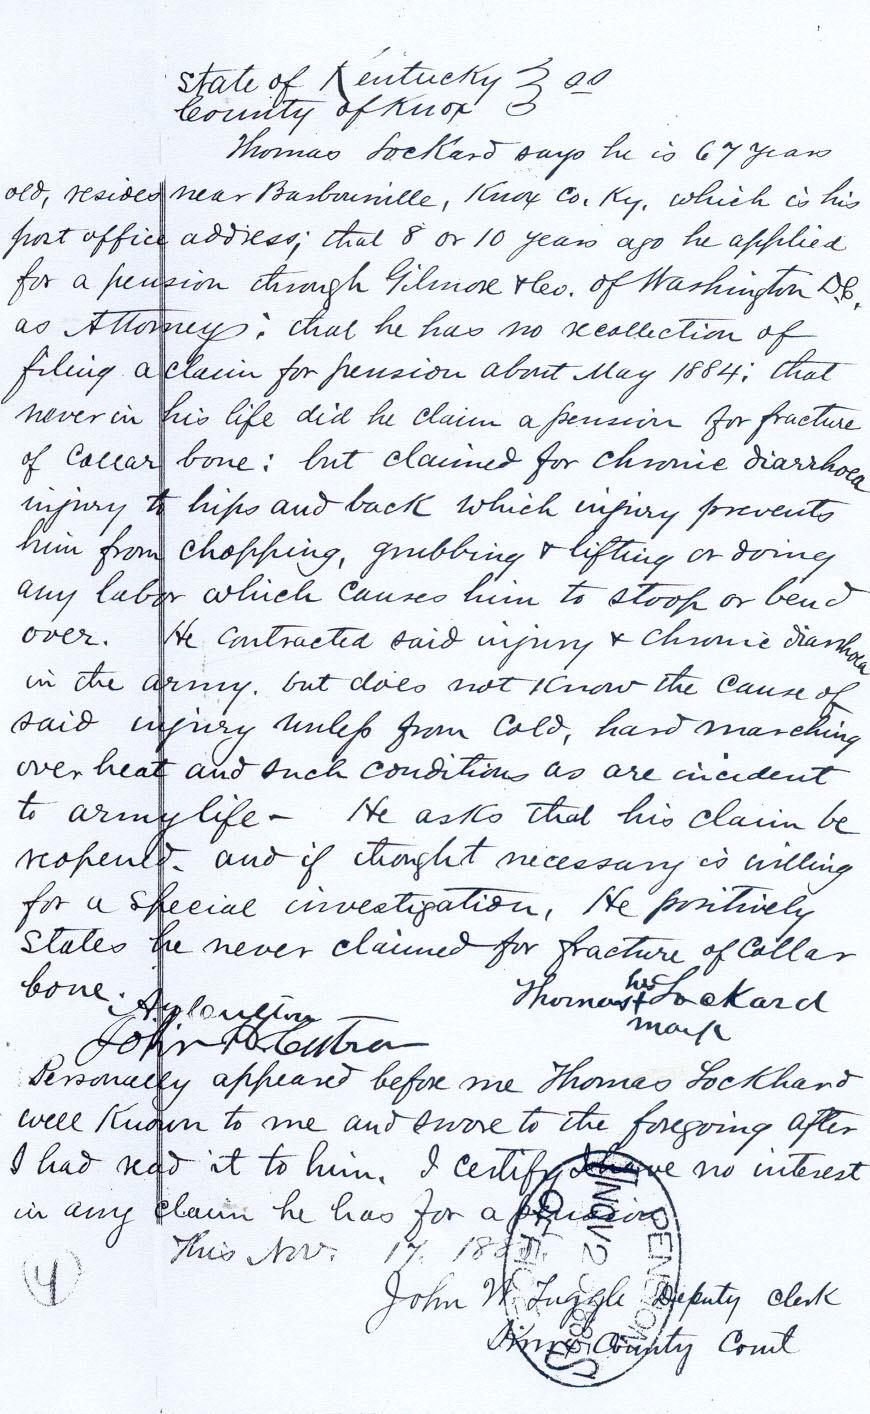 State of Kentucky } ss
County of Knox }
Thomas Lockard says he is 67 years
old, resides near Barbourville, Knox Co. Ky. which is his
post office address; that 8 or 10 years ago he applied
for a pension through Gilmore & Co. of Washington D.C.
as Attorneys: that he has no recollection of
filing a claim for pension about May 1884: that
never in his life did he claim a pension for fracture
of Collar bone: but claimed for chronic diarrhoea
injury to hips and back which injury prevents
him from chopping, grubbing & lifting or doing
any labor which causes him to stoop or bend
over. He contracted said injury & chronic diarrhoea
in the army. but does not know the cause of
said injury unless from cold, hard marching
over heat and such conditions as are incident
to army life - He asks that his claim be
reopened. and if thought necessary is willing
for a special investigation. He positively
states he never claimed for fracture of Collar
bone.
Thomas his + mark Lockard
John
Personally appeared before me Thomas Lockhard
well known to me and swore to the foregoing after
I had read it to him. I certify I have no interest
in any claim he has for a pension
This Nov. 17. 188
John W. Tuggle Deputy clerk
Knox County Court
PENSION OFFICE
NOV 2
U S
4